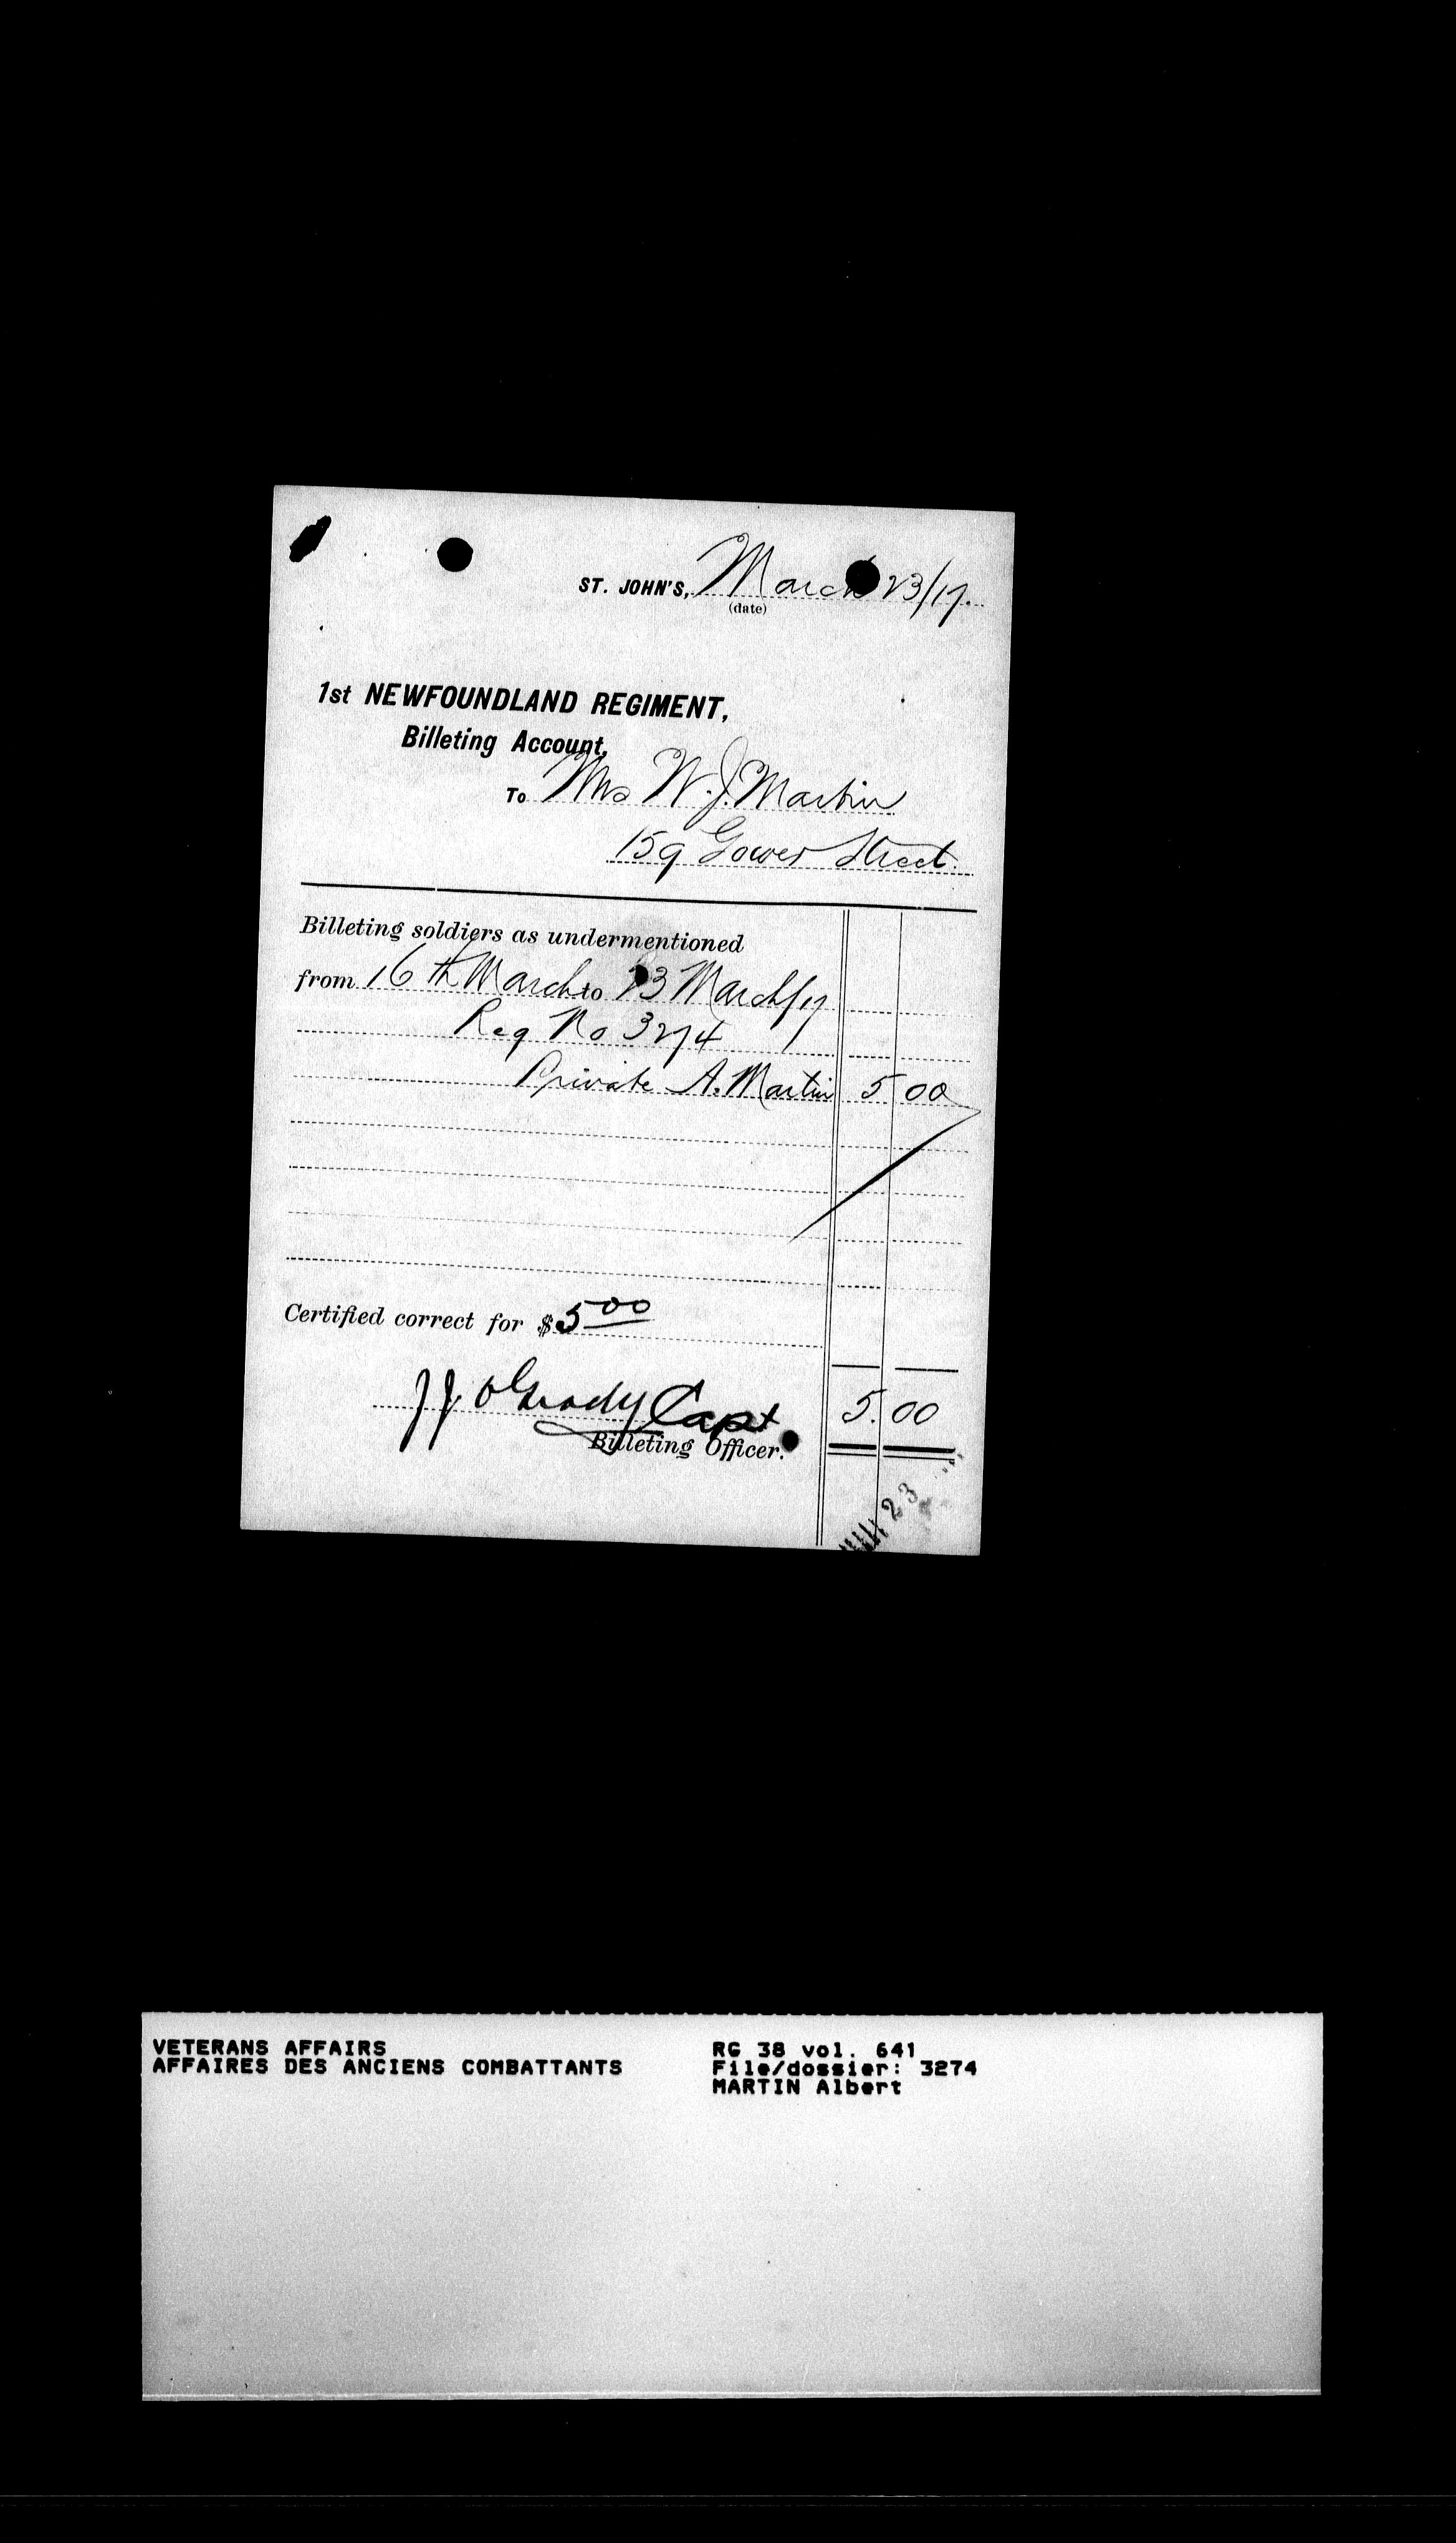 ST. JOHN'S, March 23/17.
(date)
1st NEWFOUNDLAND REGIMENT,
Billeting Account,
To Mrs W. J. Martin
159 Gower Street.
Billeting soldiers as undermentioned
from 16th March to 23 March/17
Reg No 3274
Private A. Martin 5 00
Certified correct for $5 00
J J O'Grady Capt.
5.00
Billeting Officer.
23
VETERANS AFFAIRS
AFFAIRES DES ANCIENS COMBATTANTS
RG 38 vol. 641
File/dossier: 3274
MARTIN Albert